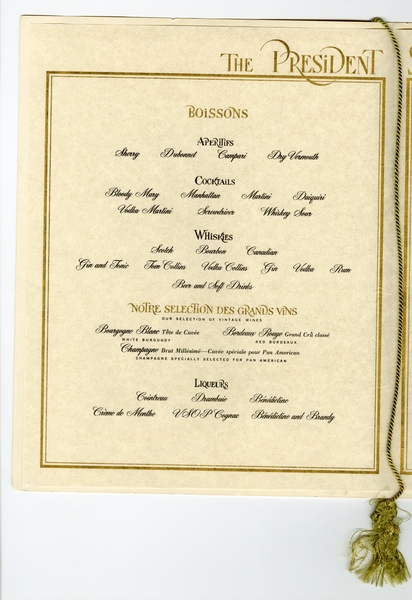 THE PRESIDENT S
BOISSONS
APERITIFS
Sherry Dubonnet Campari Dry Vermouth
COCKTAILS
Bloody Mary Manhattan Martini Daiquiri
Vodka Martini Screwdriver Whiskey Sour
WHISKIES
Scotch Bourbon Canadian
Gin and Tonic Tom Collins Vodka Collins Gin Vodka Rum
Beer and Soft Drinks
NOTRE SELECTION DES GRANDS VINS
OUR SELECTION OF VINTAGE WINES
Bourgogne Blanc Tête de Cuvée Bordeaux Rouge Grand Crû classé
WHITE BURGUNDY RED BORDEAUX
Champagne Brut Millésimé—Cuvée spéciale pour Pan American
CHAMPAGNE SPECIALLY SELECTED FOR PAN AMERICAN
LIQUEURS
Cointreau Drambuie Bénédictine
Crème de Menthe V.S.O.P Cognac Bénédictine and Brandy